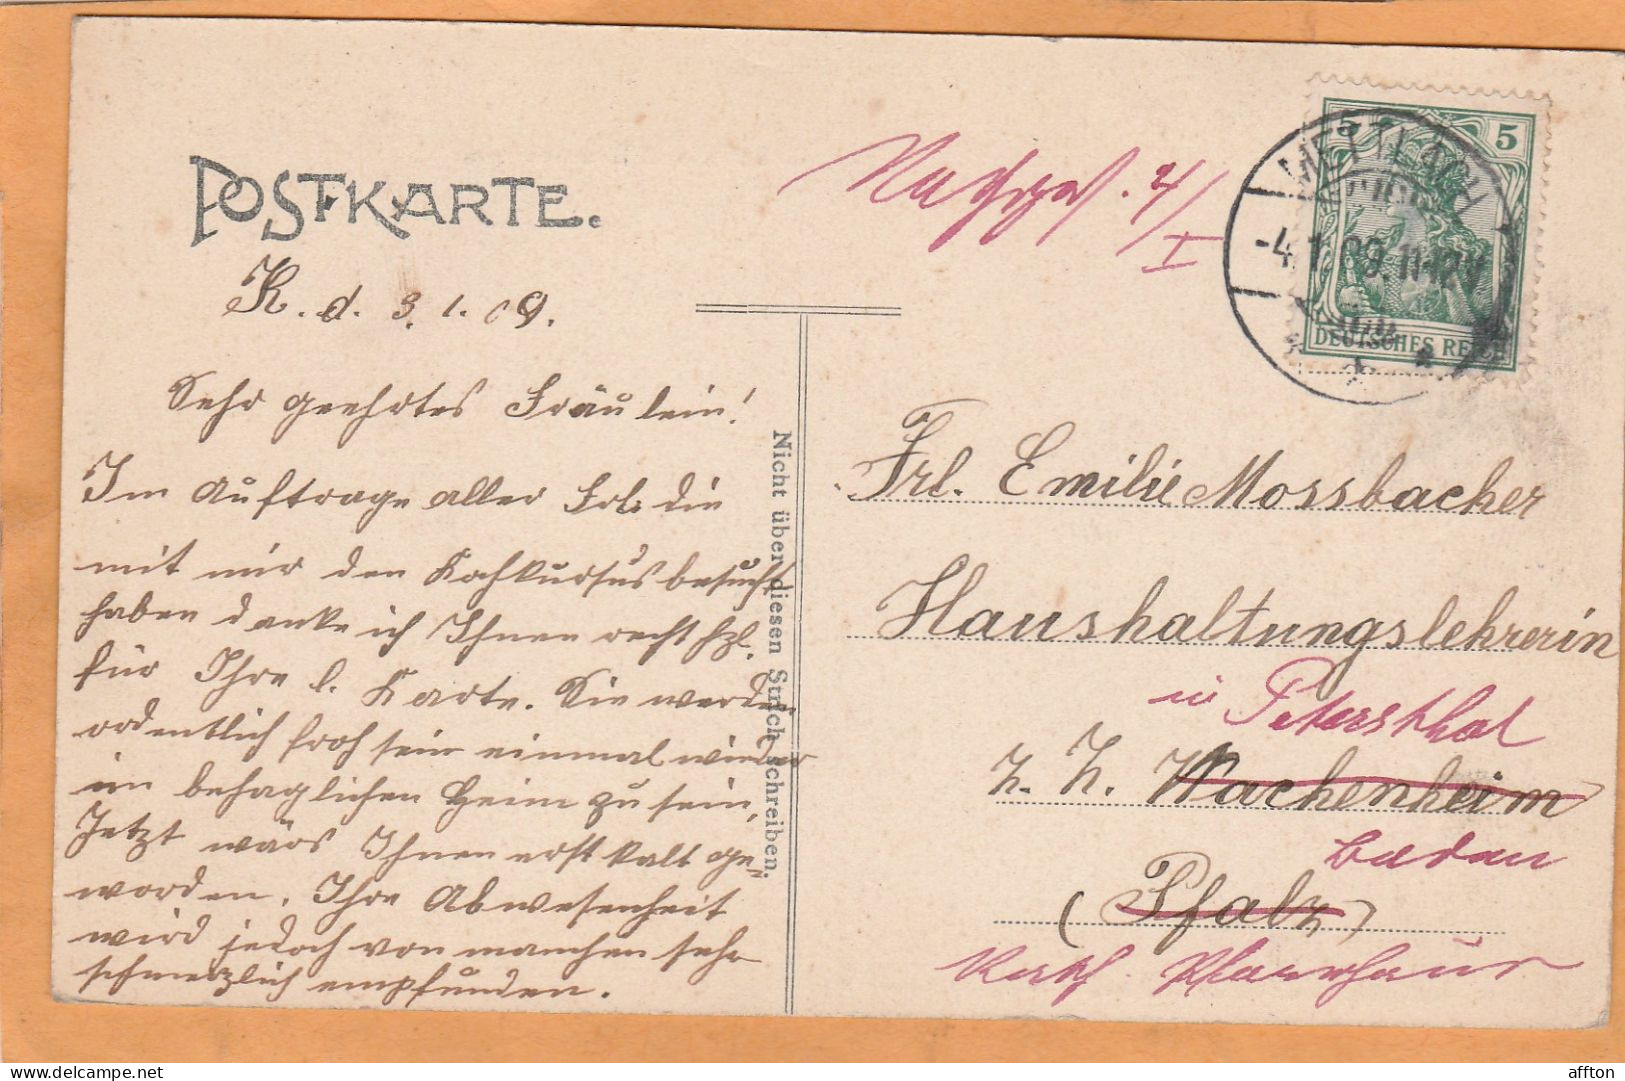 POSTKARTE.
Nachges. 4/I
METTLACH
-4.1.09. 11-12V
5
DEUTSCHES REICH
K. d. 3. 1. 09.
Sehr geehrtes Fräulein!
Im Auftrage aller Frl. die
mit mir den Kochkursus besucht
haben danke ich Ihnen recht hzl.
für Ihre l. Karte. Sie werden
ordentlich froh sein einmal wieder
im behaglichen Heim zu sein.
Jetzt wärs Ihnen erst kalt ge-
worden. Ihre Abwesenheit
wird jedoch von manchen sehr
schmerzlich empfunden.
Nicht über diesen Strich schreiben.
Frl. Emilie Mossbacher
Haushaltungslehrerin
in Petersthal
z. Z. Wachenheim
Baden
(Pfalz)
Kath. Pfarrhaus
affton